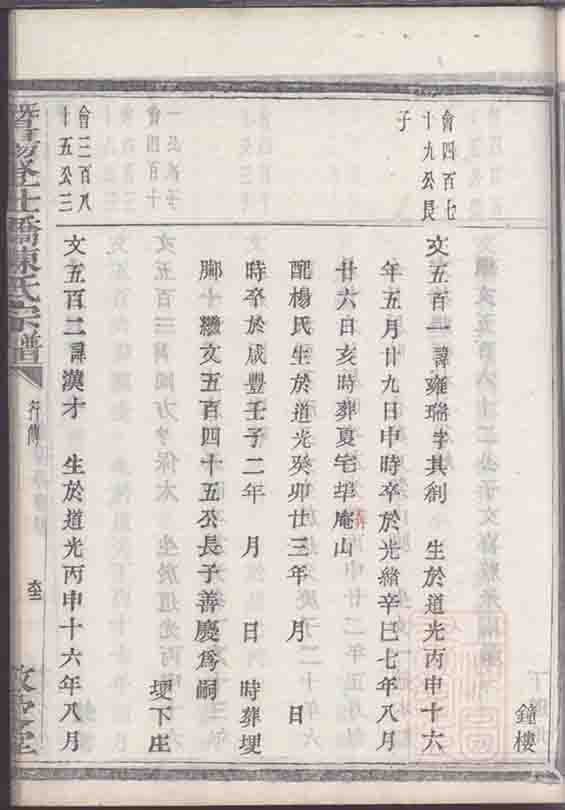 鐘樓
會四百七
十九公長
子
文五百一諱雍瑞字其創 生於道光丙申十六
年五月廿九日申時卒於光緒辛巳七年八月
廿六日亥時葬夏宅 庵山
配楊氏生於道光癸卯廿三年 月 日
時卒於咸豐壬子二年 月 日 時葬埂
腳十繼文五百四十五公長子善慶為嗣
埂下庄
會三百八
十五公三
文五百二諱漢才 生於道光丙申十六年八月
橋陳氏宗譜
行傳